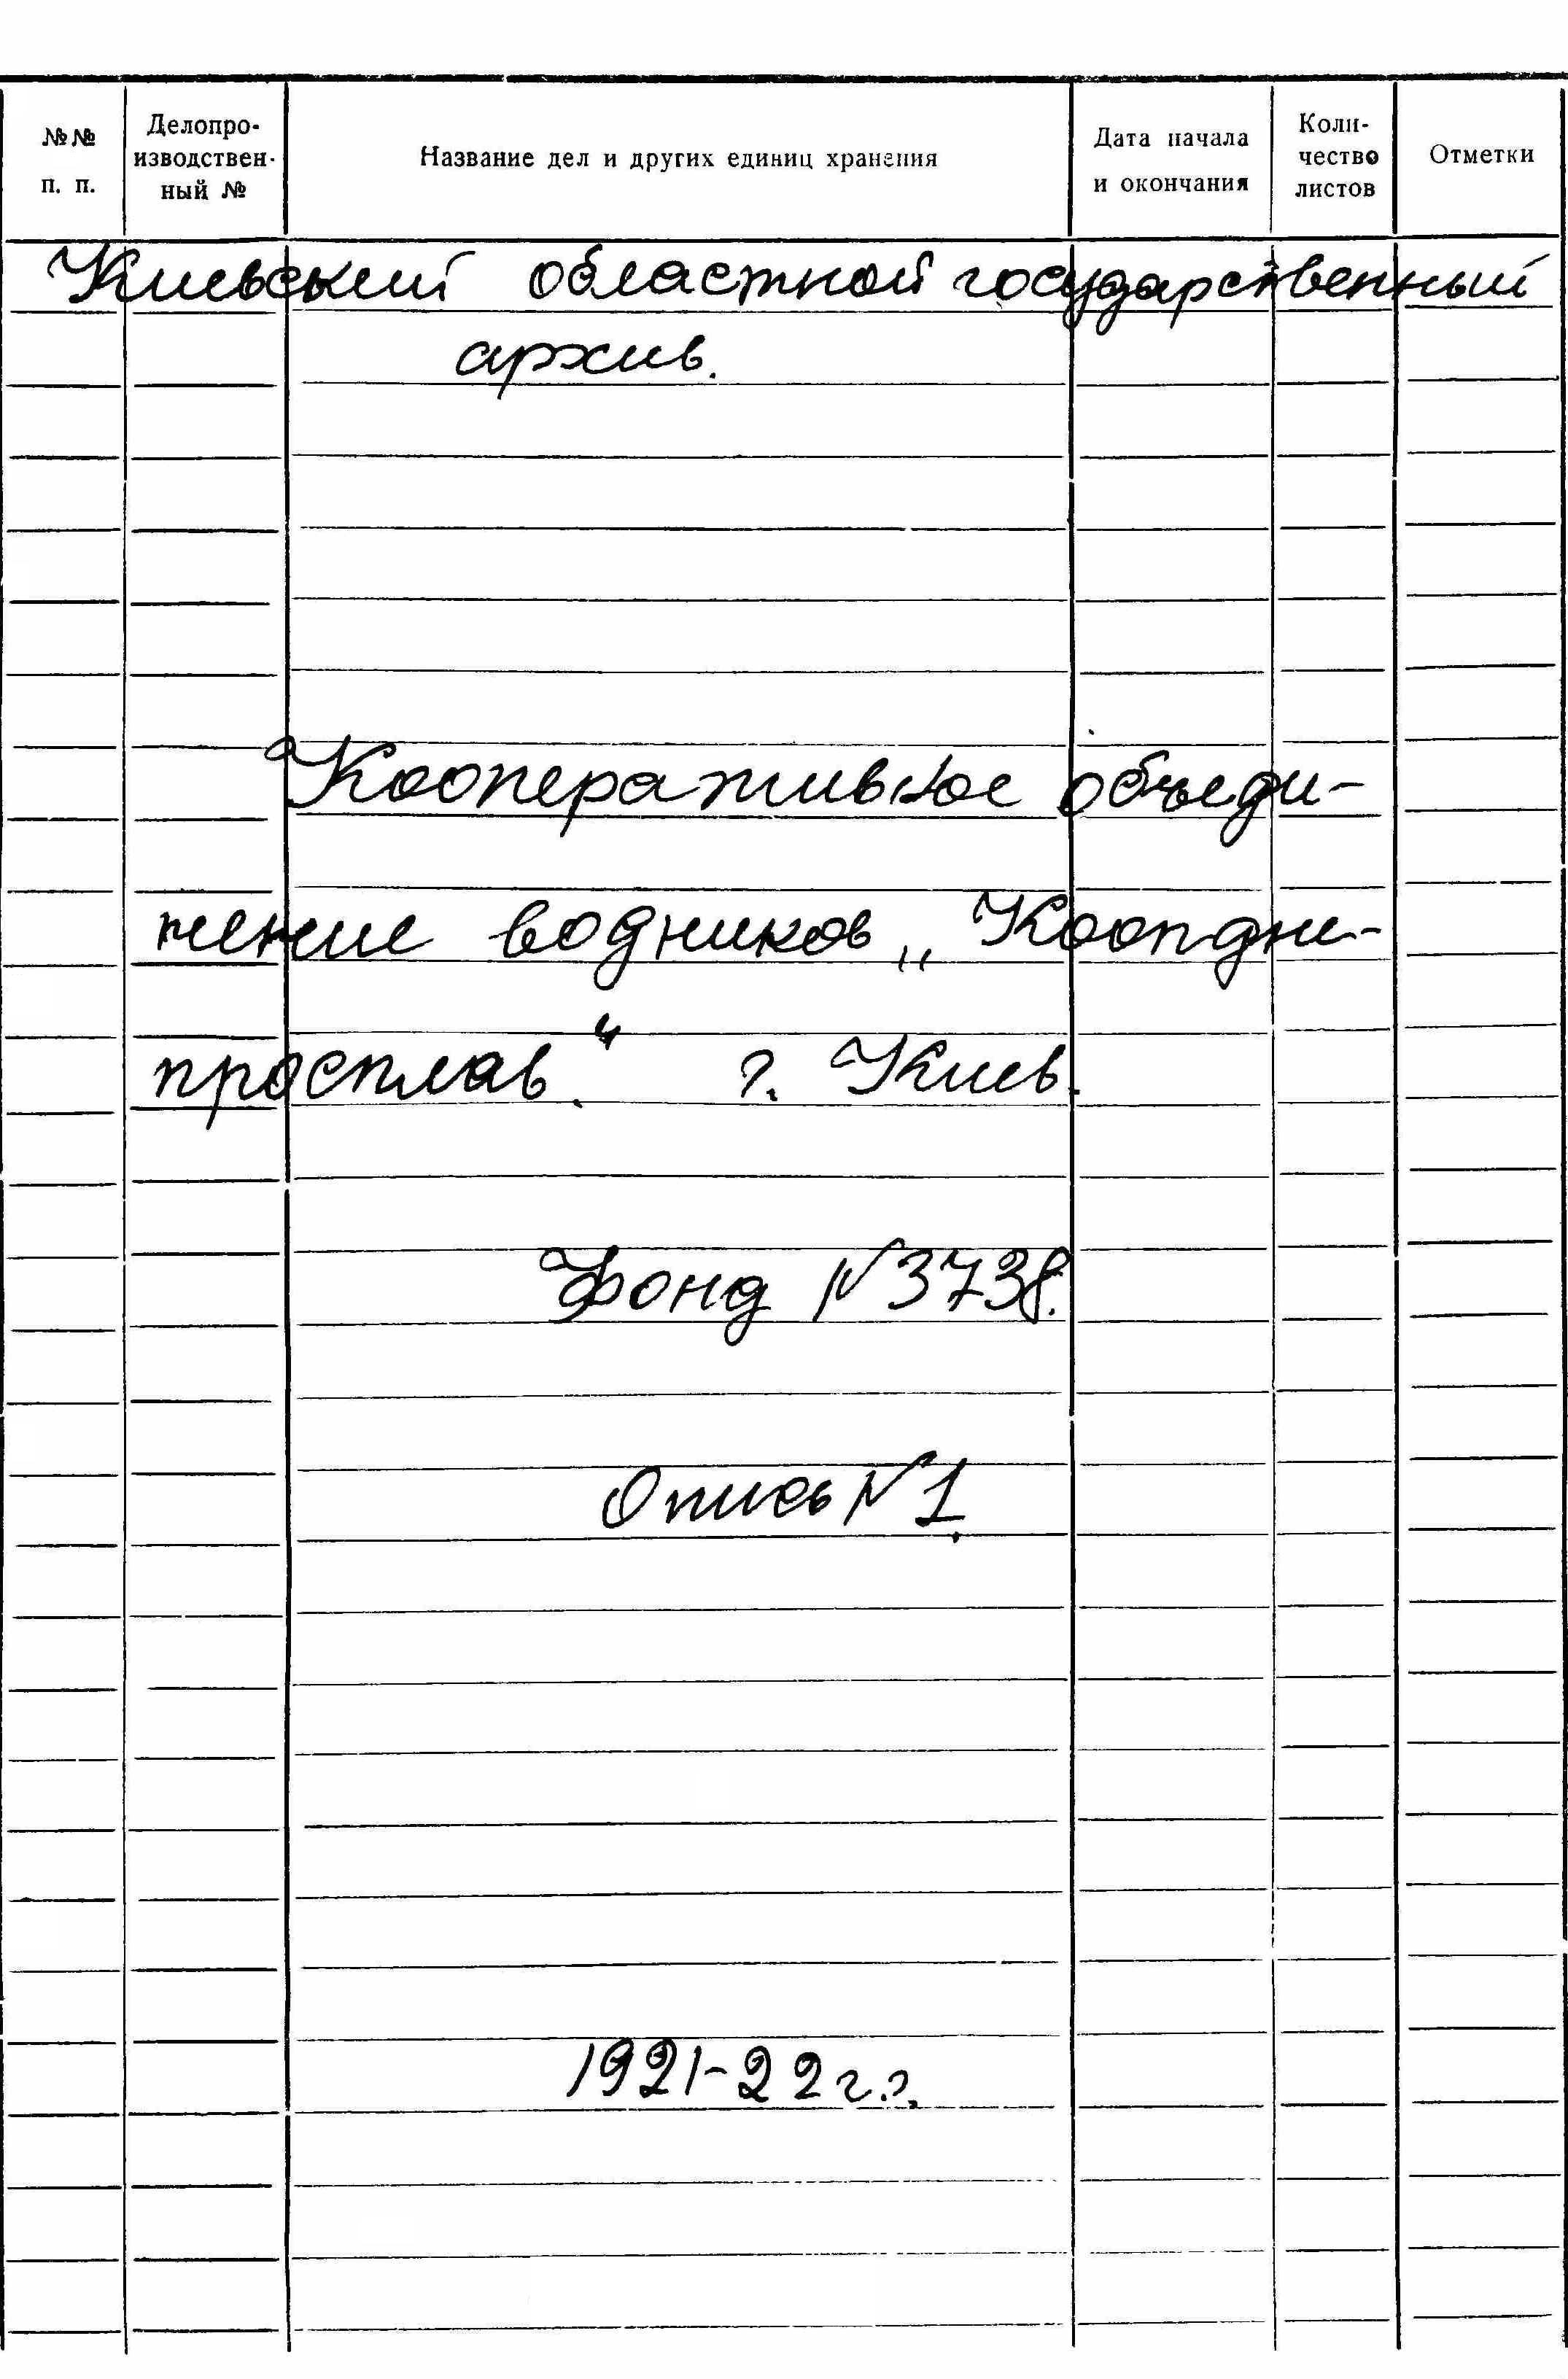 №№ п. п.
Делопро-
изводствен-
ный №
Название дел и других единиц хранения
Дата начала
и окончания
Коли-
чество
листов
Отметки
Киевский областной государственный
архив.
Кооперативное объеди-
нение водников „Коопдне-
просплав." г. Киев.
Фонд №3738.
Опись №1.
1921-22 г.г.